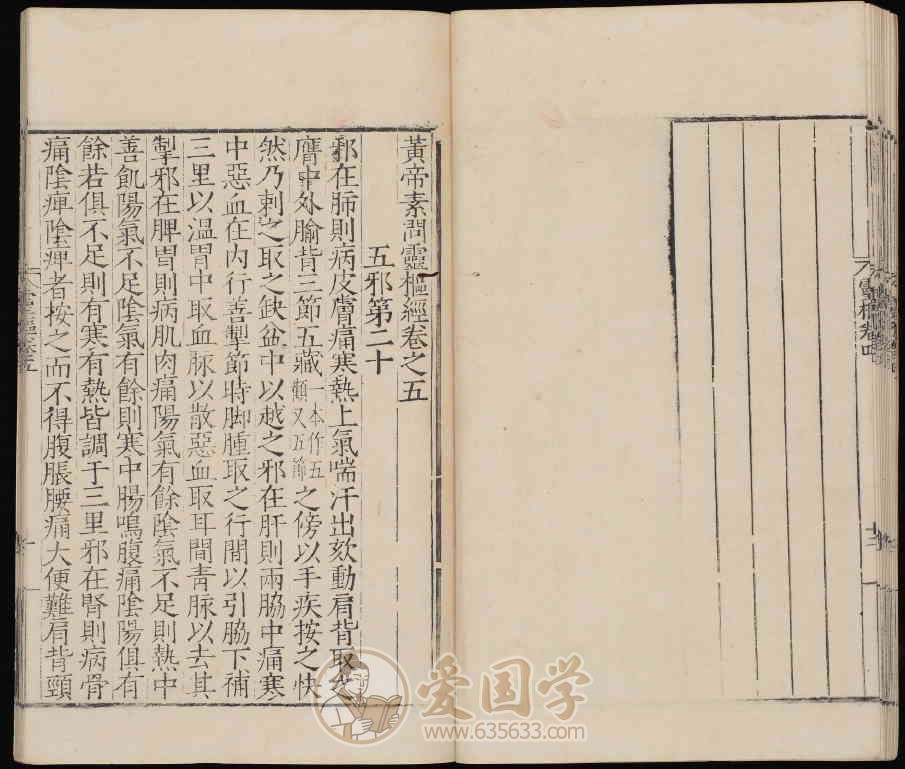 黃帝素問靈樞經卷之五
五邪第二十
邪在肺則病皮膚痛寒熱上氣喘汗出欬動肩背取之
膺中外腧背三節五藏一本作五顀又五節之傍以手疾按之快
然乃刺之取之缺盆中以越之邪在肝則兩脇中痛寒
中惡血在内行善掣節時脚腫取之行間以引脇下補
三里以温胃中取血脉以散惡血取耳間青脉以去其
掣邪在脾胃則病肌肉痛陽氣有餘陰氣不足則熱中
善飢陽氣不足陰氣有餘則寒中腸鳴腹痛陰陽俱有
餘若俱不足則有寒有熱皆調于三里邪在腎則病骨
痛陰痺陰痺者按之而不得腹脹腰痛大便難肩背頸
靈樞卷四
十二
爱国学
www.635633.com